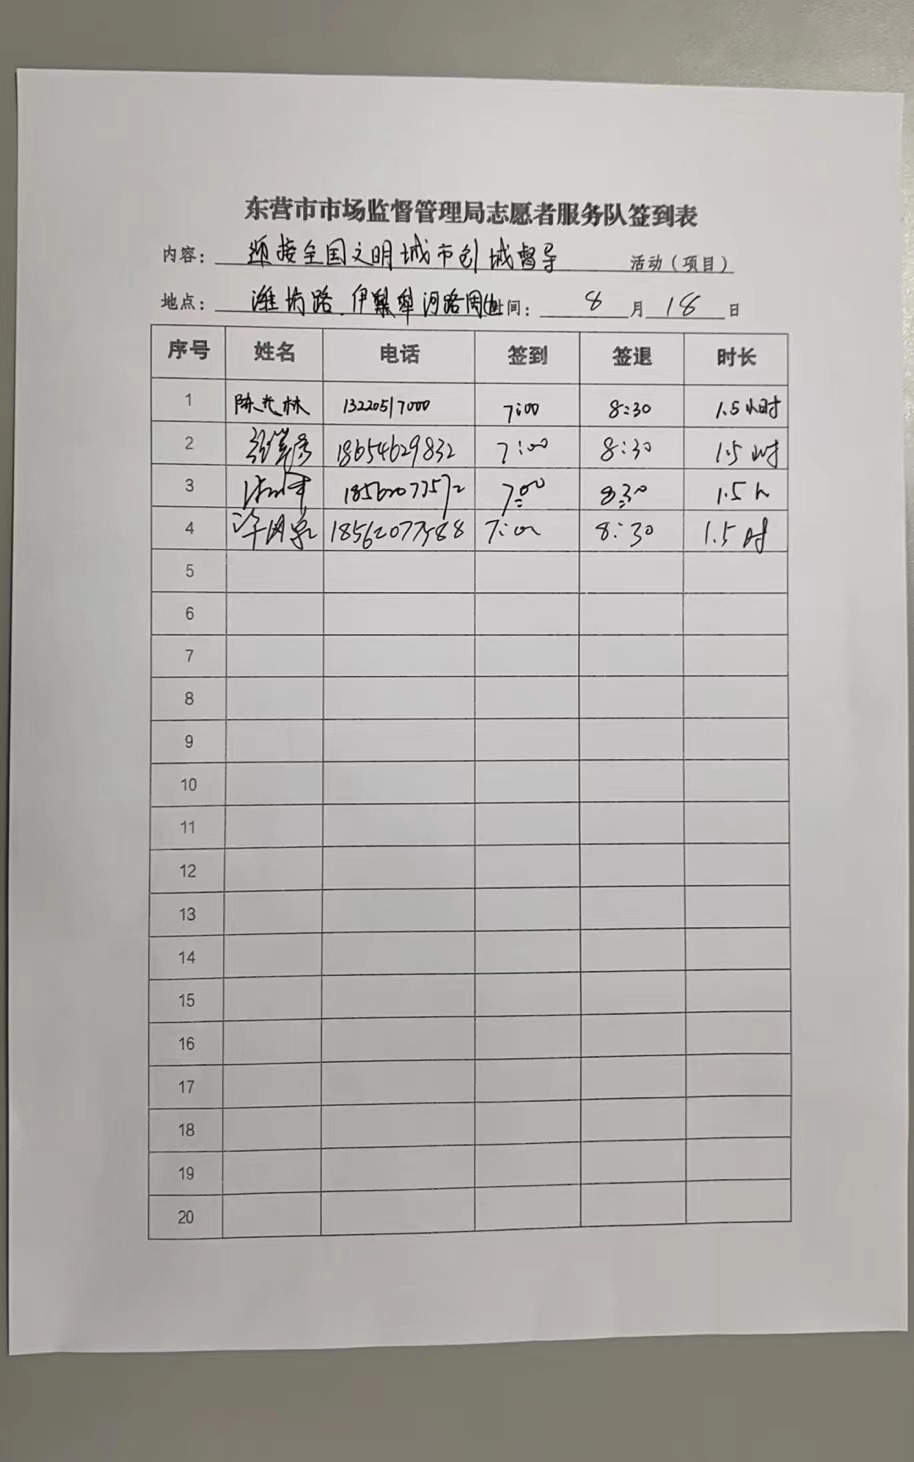 东营市市场监督管理局志愿者服务队签到表
内容：迎接全国文明城市创城督导 活动（项目）
地点：潍坊路、伊犁河路周边 时间：8月18日
序号 姓名 电话 签到 签退 时长
1 陈光林 13220517000 7:00 8:30 1.5小时
2 18654629832 7:00 8:30 1.5时
3 18562077572 7:00 8:30 1.5h
4 18562077588 7:00 8:30 1.5时
5
6
7
8
9
10
11
12
13
14
15
16
17
18
19
20